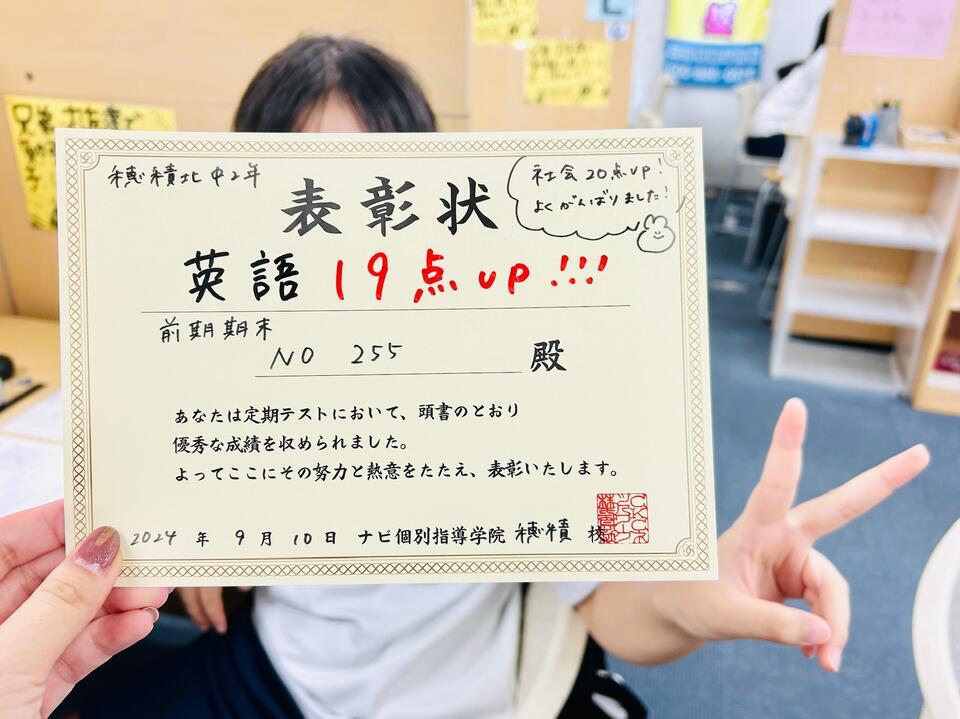 穂積北中2年
表彰状
社会20点UP!
よくがんばりました!
英語 19点up!!!
前期期末
NO 255 殿
あなたは定期テストにおいて、頭書のとおり
優秀な成績を収められました。
よってここにその努力と熱意をたたえ、表彰いたします。
2024 年 9 月 10 日 ナビ個別指導学院 穂積 校